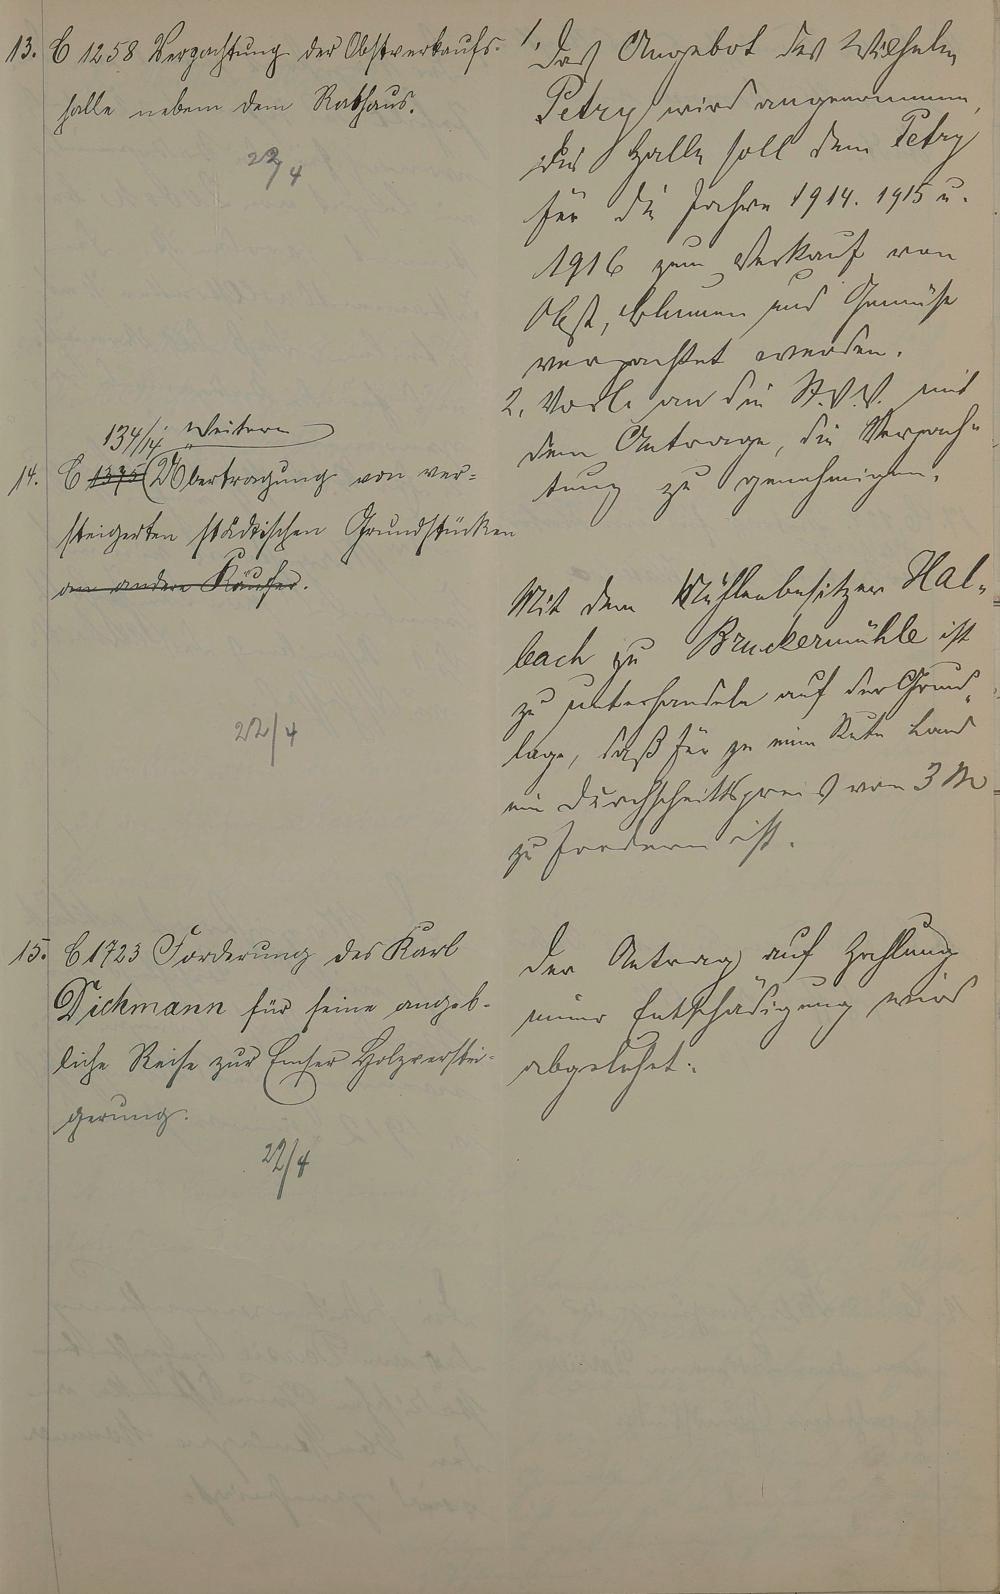 13. C 1258 Verpachtung der Obstverkaufs-
halle nebem dem Rathaus.
22/4
1. Das Angebot des Wilhelm
Petry wird angenommen,
die Halle soll dem Petry
für die Jahre 1914. 1915 u.
1916 zum Verkauf von
Obst, Blumen und Gemüse
verpachtet werden.
2. Vorl. an die St.V.V. mit
dem Antrage, die Verpach-
tung zu genehmigen.
134/14 Weitere
14. C 1375 Übertragung von ver-
steigerten städtischen Grundstücken
an andere Käufer.
22/4
Mit dem Mühlenbesitzer Hal-
bach zu Bruckermühle ist
zu unterhandeln auf der Grund-
lage, daß für je eine Rute Land
ein Durchschnittspreis von 3 M
zu fordern ist.
15. C 1723 Forderung des Karl
Dickmann für seine angeb-
liche Reise zur Emser Holzverstei-
gerung.
22/4
Der Antrag auf Zahlung
einer Entschädigung wird
abgelehnt.